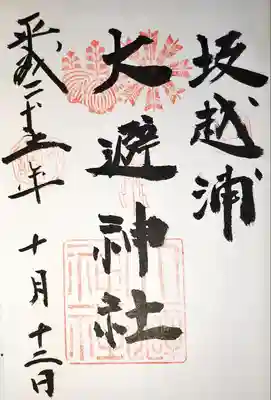 坂越浦
大避神社
平成二十五年
十月十二日